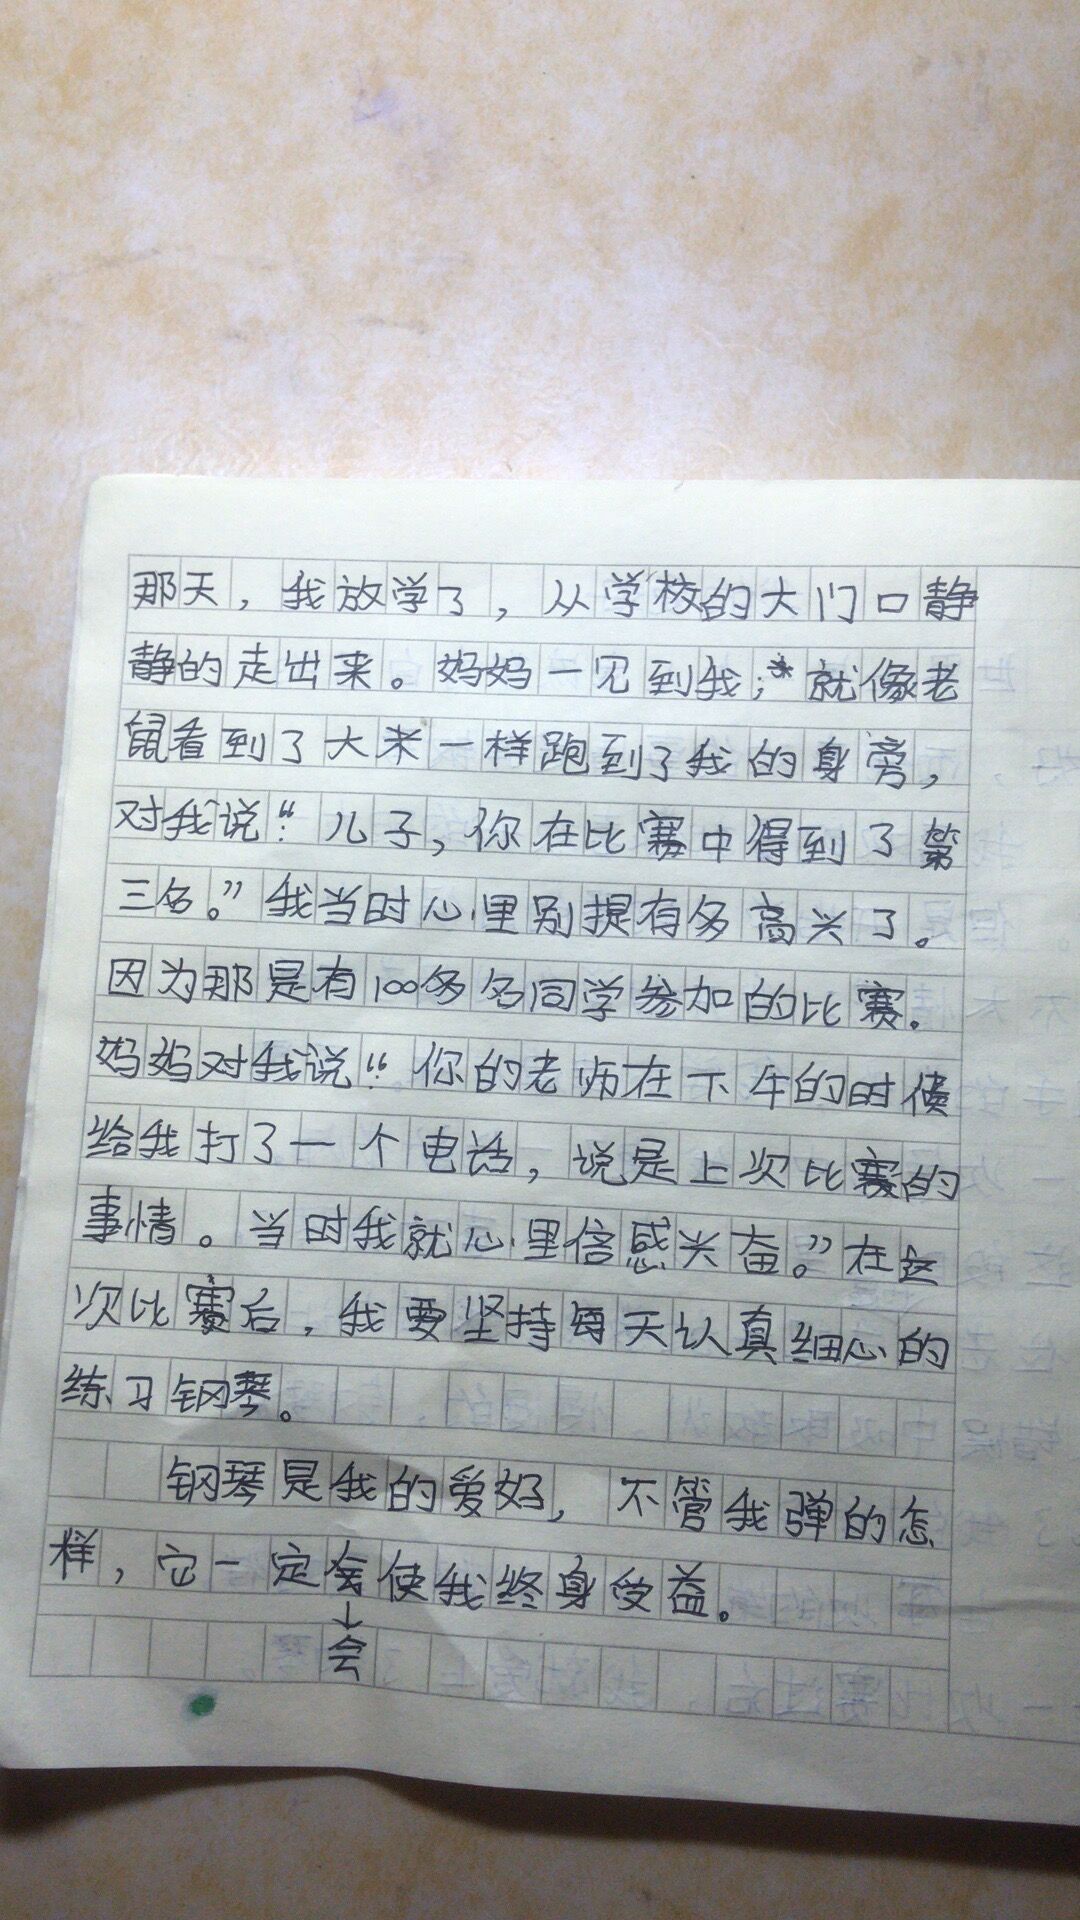 那天，我放学了，从学校的大门口静
静的走出来。妈妈一见到我，就像老
鼠看到了大米一样跑到了我的身旁，
对我说：“儿子，你在比赛中得到了第
三名。”我当时心里别提有多高兴了。
因为那是有100多名同学参加的比赛。
妈妈对我说：“你的老师在下午的时候
给我打了一个电话，说是上次比赛的
事情。当时我就心里倍感兴奋。”在这
次比赛后，我要坚持每天认真细心的
练习钢琴。
钢琴是我的爱好，不管我弹的怎
样，它一定会使我终身受益。
↓
会